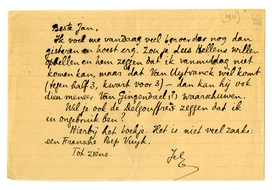 [1931]
Beste Jan,
Ik voel me vandaag veel beroerder nog dan
gisteren en hoest erg. Zou je dus Hellens willen
opbellen en hem zeggen dat ik vanmiddag niet
komen kan, maar dat Van Uytvanck wel komt
(tegen half 3, kwart voor 3) – dan kan hij ook
dien meneer Van Gingendael(?) waarschuwen.
Wil je ook de Delgouffre's zeggen dat ik
in ongebruik ben?
Hierbij het boekje. Het is niet veel zaaks:
een Fransche Bep Vuyk.
Tot ziens